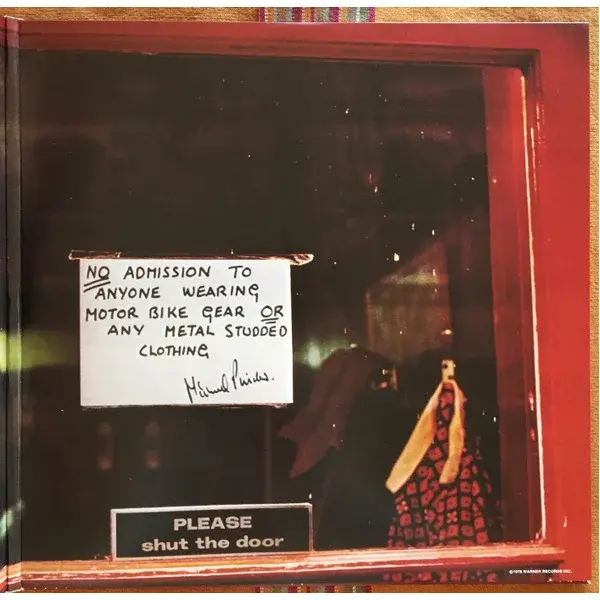 NO ADMISSION TO
ANYONE WEARING
MOTOR BIKE GEAR OR
ANY METAL STUDDED
CLOTHING
PLEASE
shut the door
©1978 WARNER RECORDS INC.